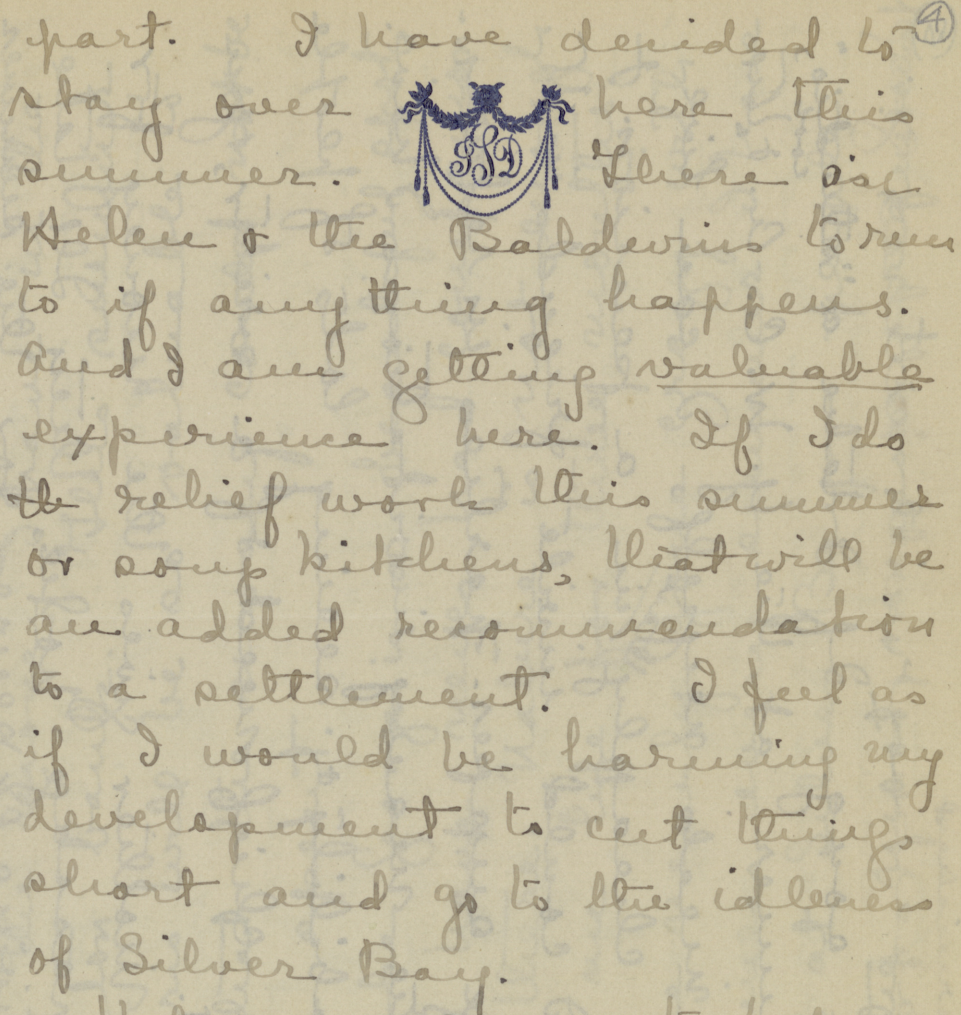 ④
part. I have decided to
stay over here this
JSD
summer. There is
Helen & the Baldwins to run
to if anything happens.
And I am getting valuable
experience here. If I do
relief work this summer
or soup kitchens, that will be
an added recommendation
to a settlement. I feel as
if I would be harming my
development to cut things
short and go to the idleness
of Silver Bay.